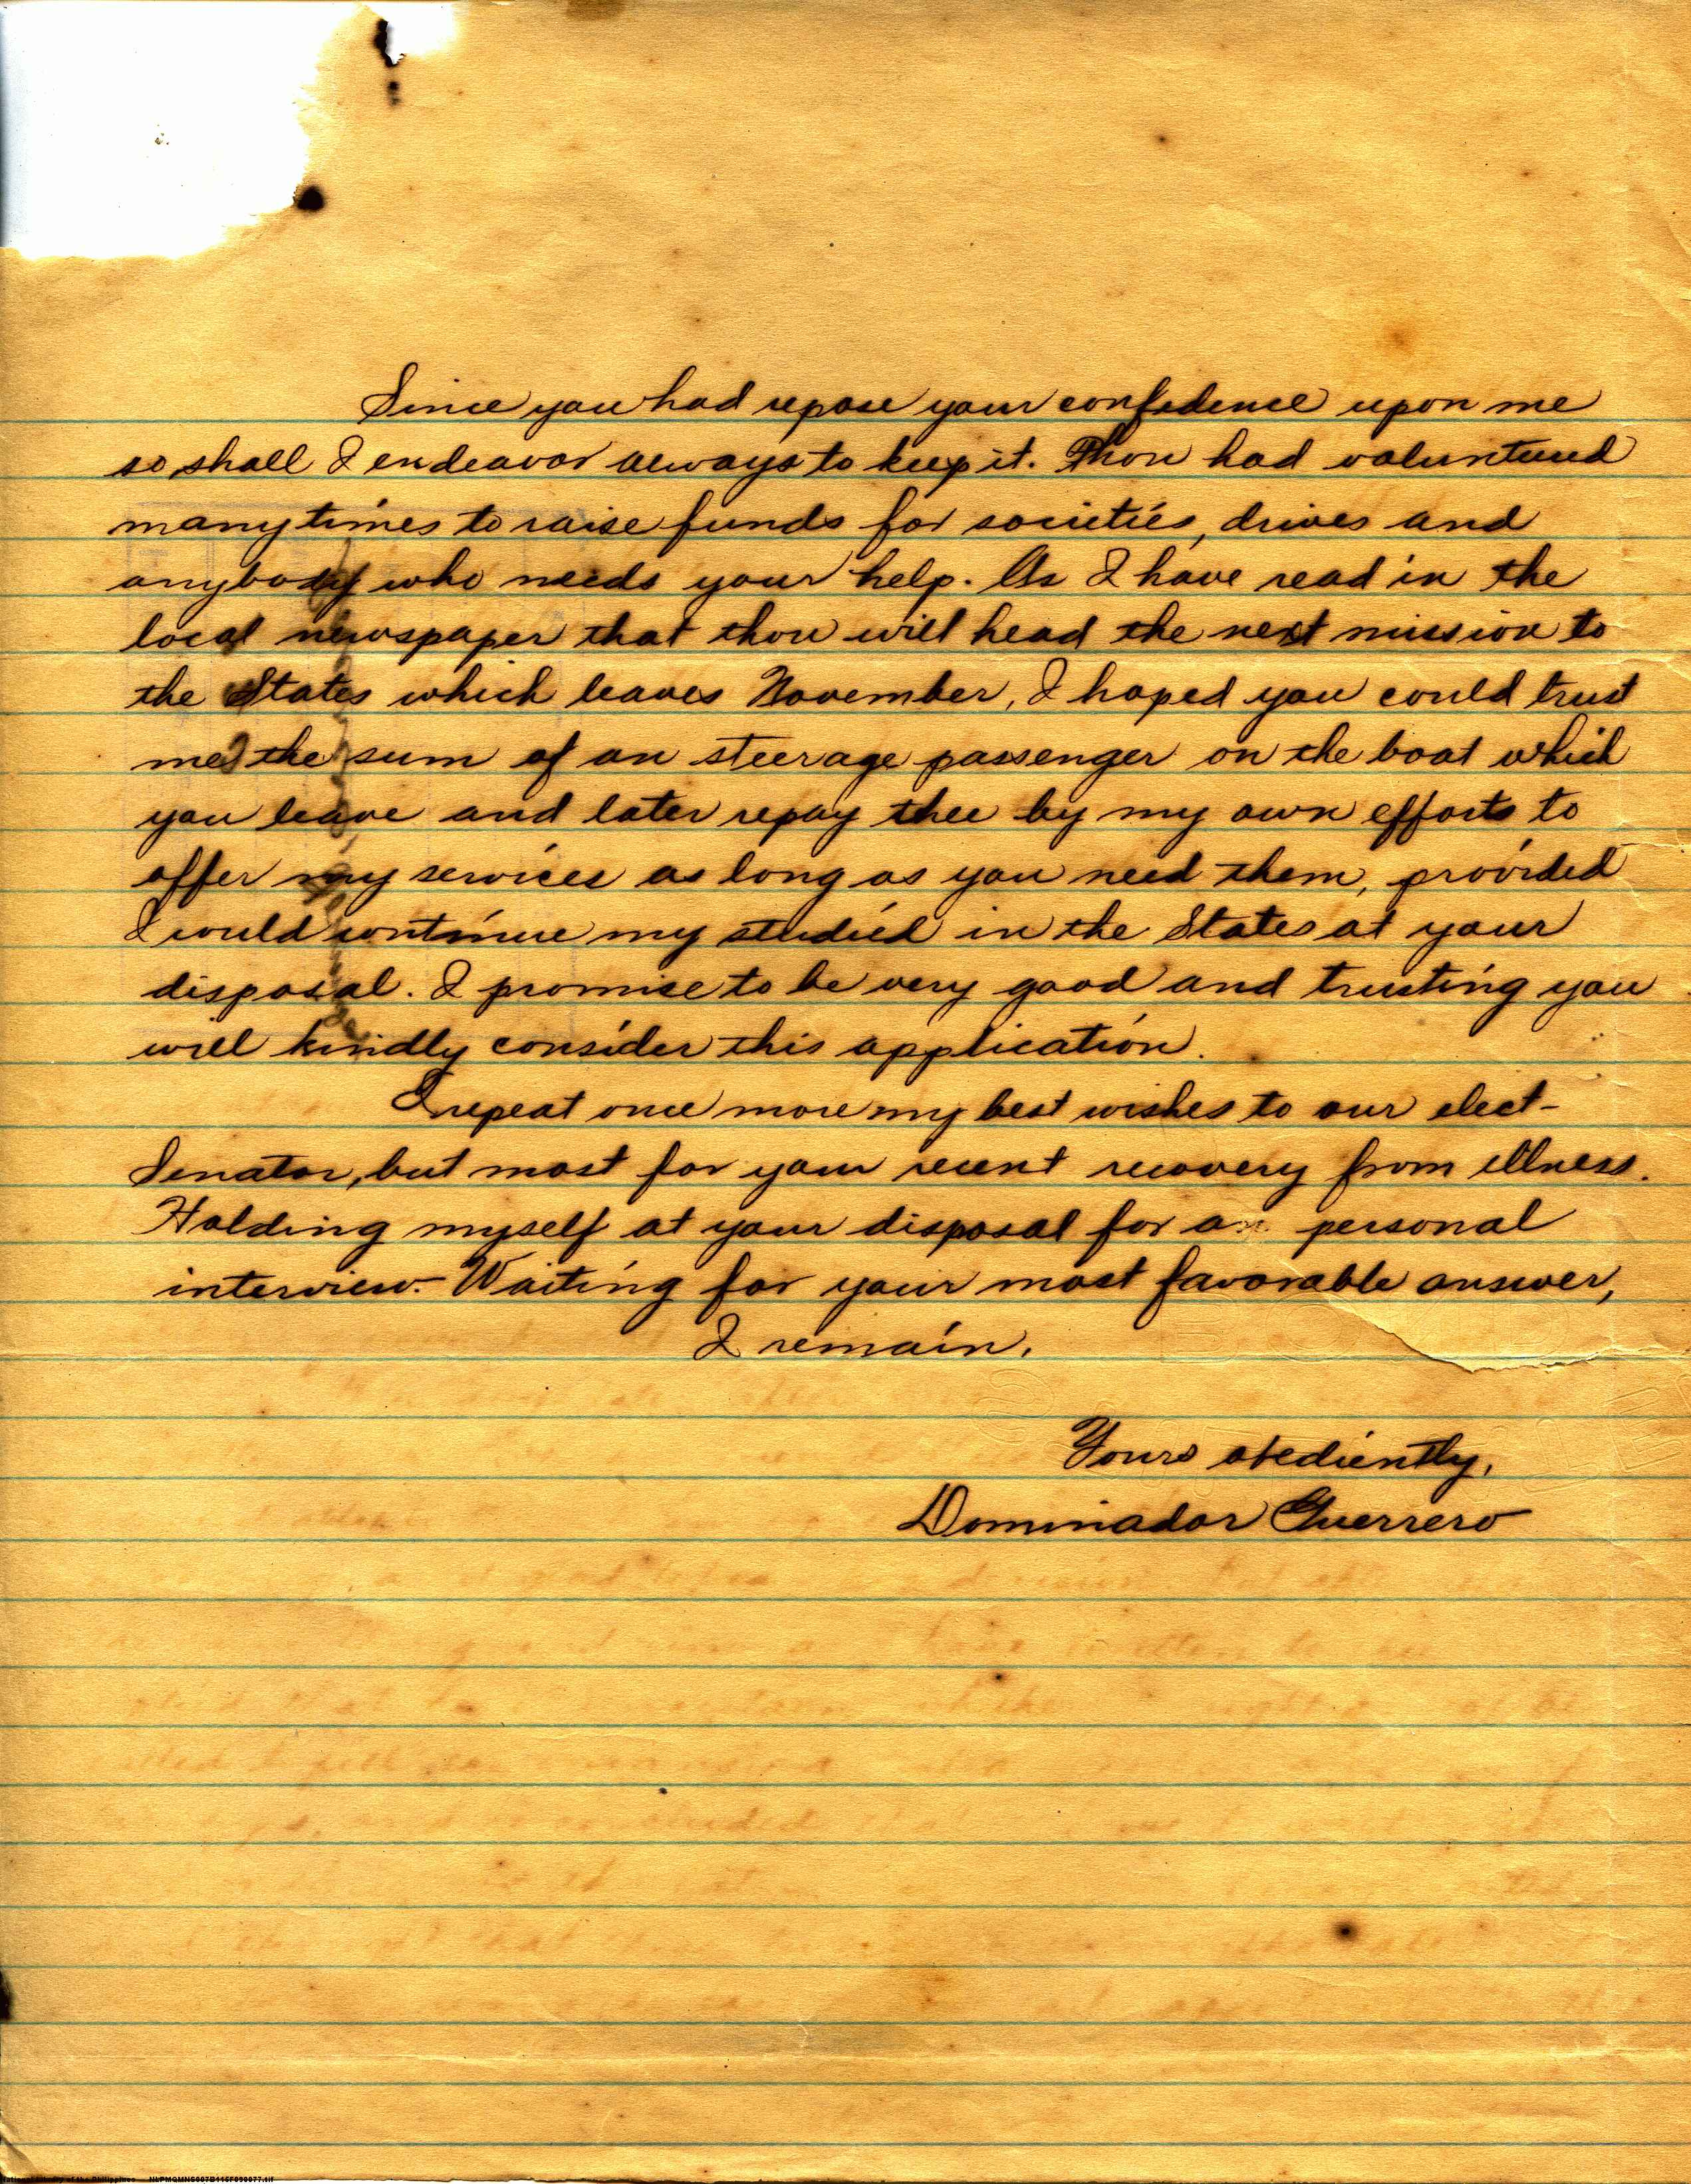 Since you had repose your confidence upon me
so shall I endeavor always to keep it. Thou had volunteed
many times to raise funds for societies, drives and
anybody who needs your help. As I have read in the
local newspaper that thou will head the next mission to
the States which leaves November, I hoped you could trust
me the sum of an steerage passenger on the boat which
you leave and later repay thee by my own efforts to
offer my services as long as you need them, provided
I would continue my studied in the States at your
disposal. I promise to be very good and trusting you
will kindly consider this application.
I repeat once more my best wishes to our elect-
Senator, but most for your recent recovery from illness.
Holding myself at your disposal for an personal
interview. Waiting for your most favorable answer,
I remain,
Yours obediently,
Dominador Guerrero
National Library of the Philippines